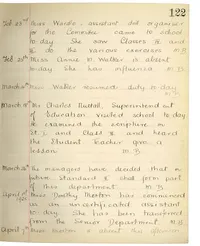 122
Feb. 23rd Miss Wardle, assistant did organiser
for the Committee came to school
to day. She saw Classes &
& do the various exercises M.B.
Feb. 28th Miss Annie M. Walker is absent
to-day. She has influenza. M.B.
March Miss Walker resumed duty to-day
M.B.
March Mr Charles Nuttall, Superintendent of
Education visited school to day
& examined the
St. 3 and Class & and heard
the Student Teacher give a
lesson. M.B.
March The managers have decided that in
future Standard shall form part
of this department. M.B.
April Miss Dorothy Norton has commenced
1921 as an uncertificated assistant
to day. She has been transferred
from the Senior Department. M.B.
April 7th Miss Norton is absent this afternoon